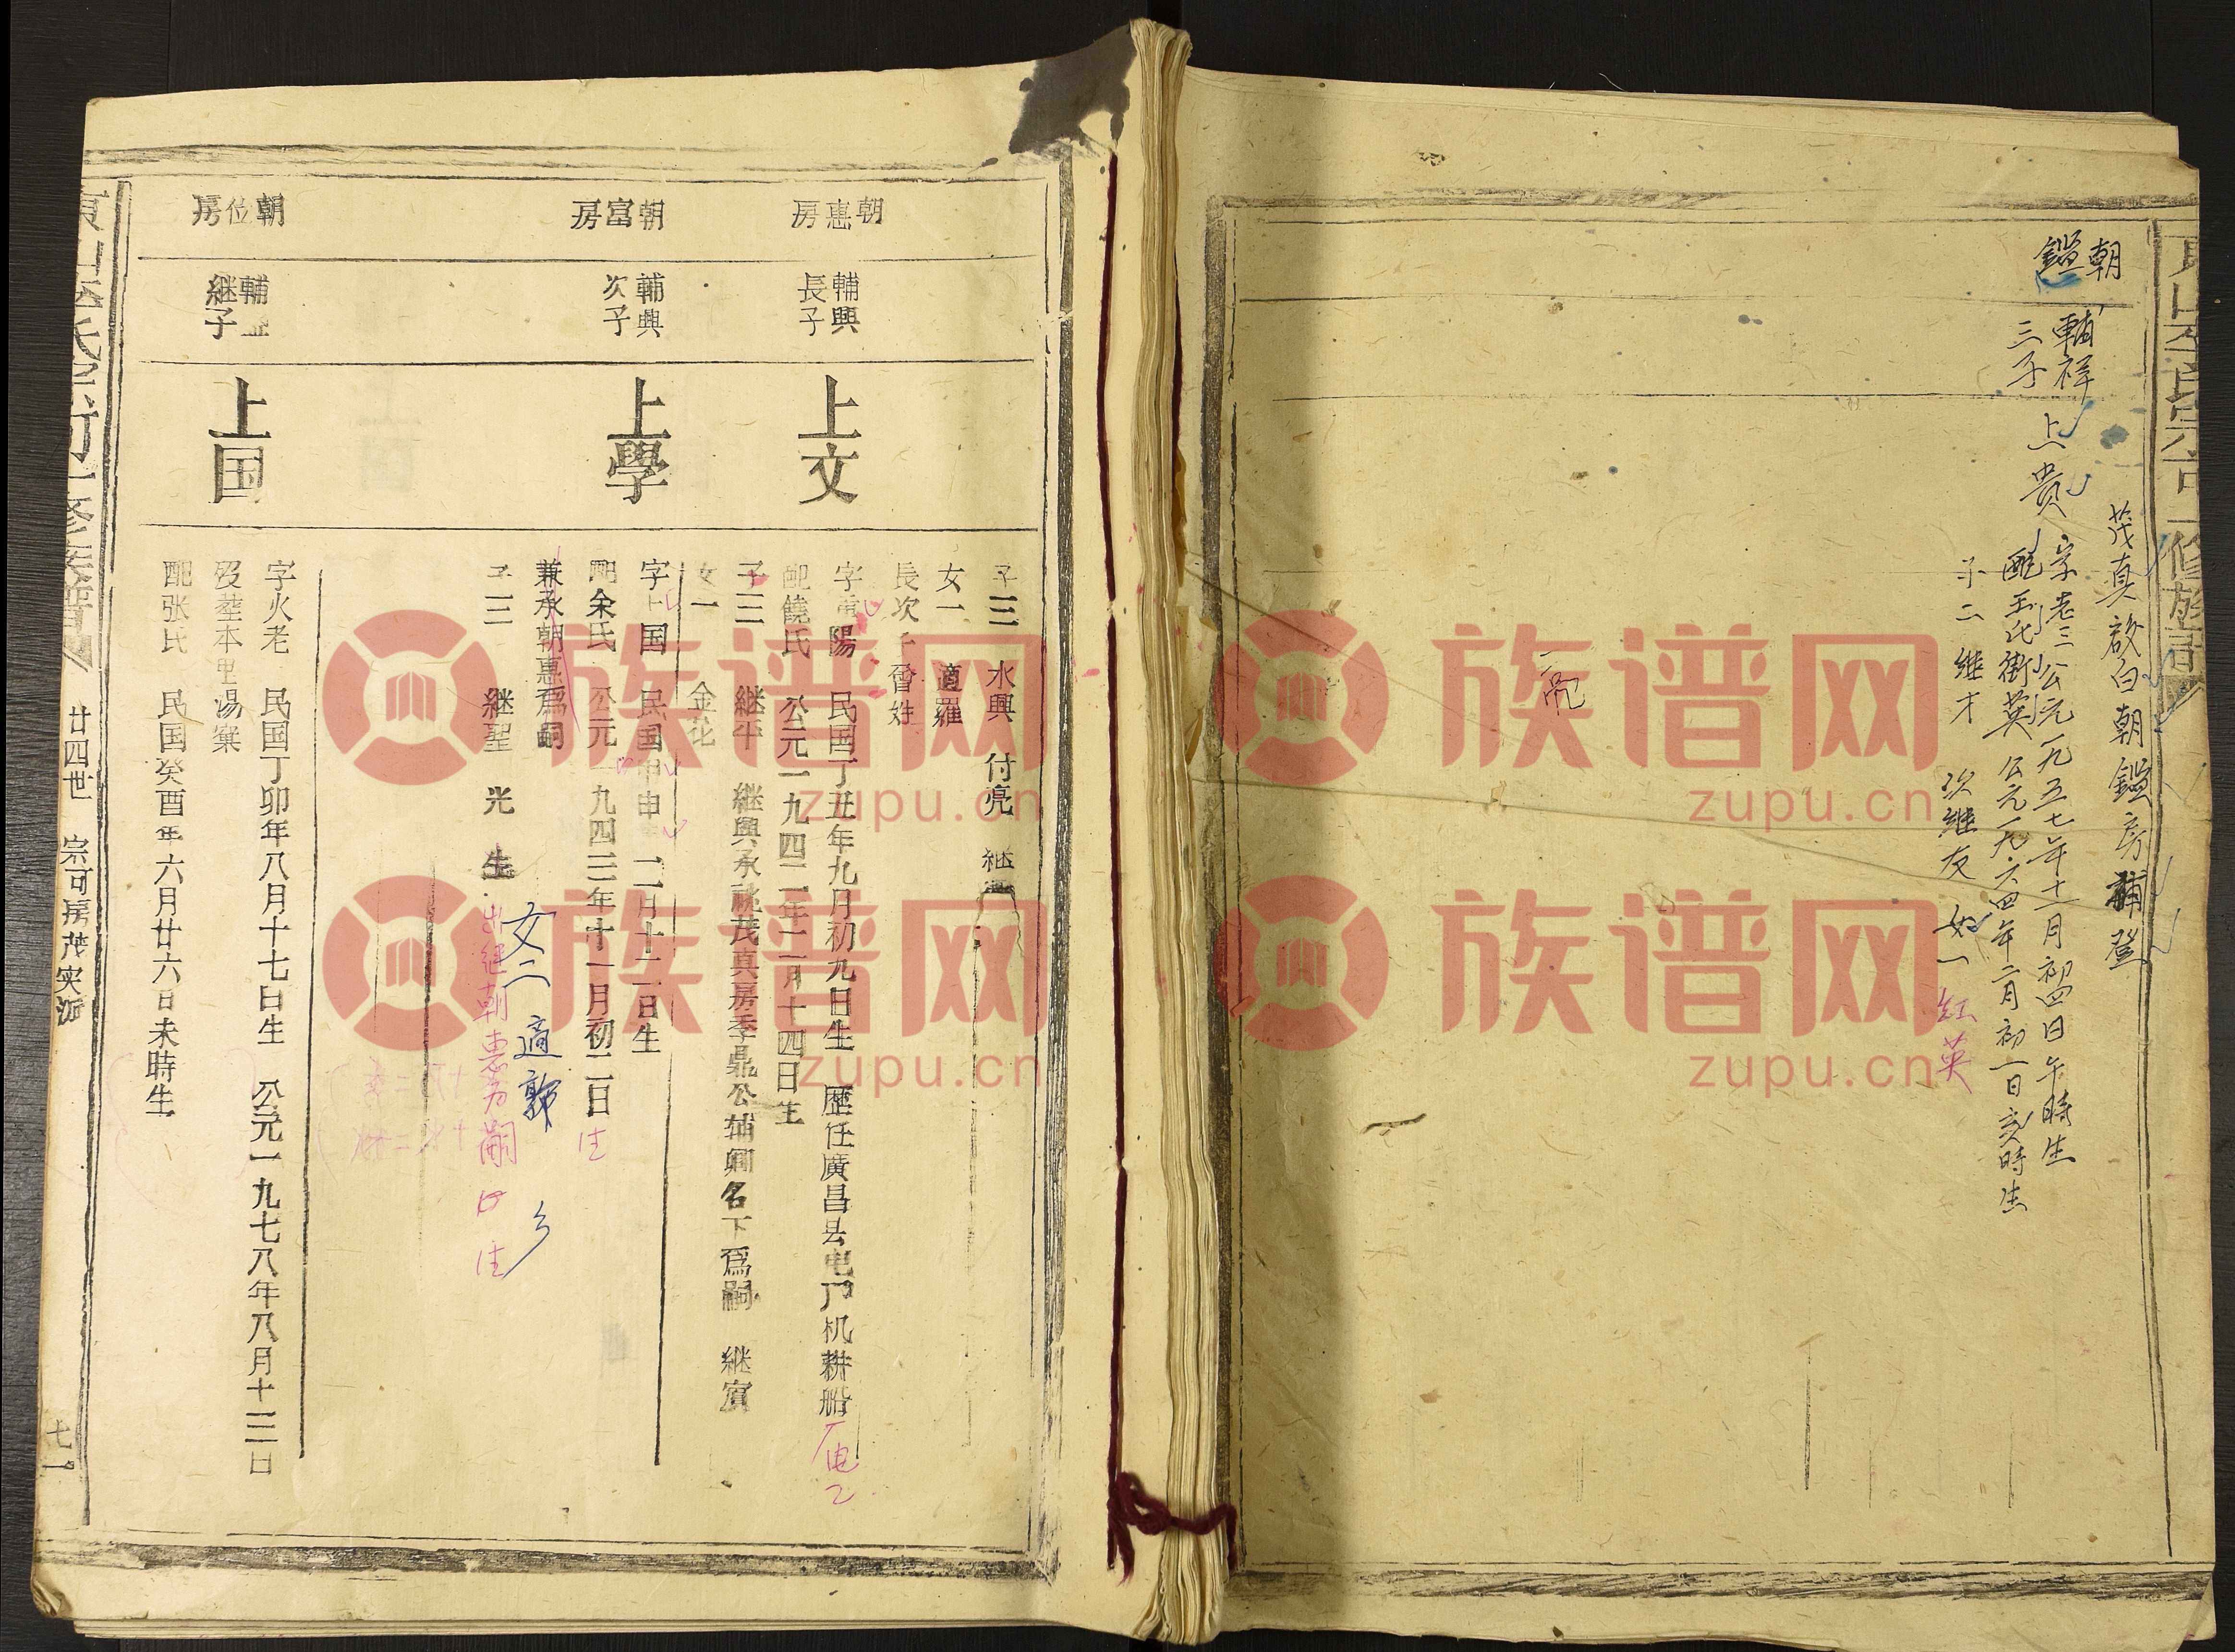 朝鎰
輔祥
三子
上贵
茂真
啟白
朝鎰房補登
字老三 公元一九五七年十一月初四日午時生
配王氏街英 公元一九六四年二月初一日亥時生
子二 继才 次继友 女一 红英
亮
修族譜
朝惠房
輔興
長子
上文
子三 水興 付亮 継
女一 適羅
長次子 曾姓
字 陽 民国丁丑年九月初九日生 歷任廣昌县 机耕船
厂电工
配饒氏 公元一九四二年二月十四日生
子三 继平 継興承祧茂真房季鼎公辅 名下爲嗣 継賓
女一 金花
朝富房
輔興
次子
上學
字 国 民国 申 二月十二日生
配余氏 公元一九四三年十一月初二日
生
兼承朝惠爲嗣
女二 適郭
子三 継聖 光生
出继朝惠为嗣
朝位房
輔
継子
上国
字火老 民国丁卯年八月十七日生 公元一九七八年八月十三日
歿塟本里湯寨
配张氏 民国癸酉年六月廿六日未時生
廿四世 宗可房茂实派
七一
族谱网
zupu.cn
族谱网
zupu.cn
族谱网
zupu.cn
族谱网
zupu.cn